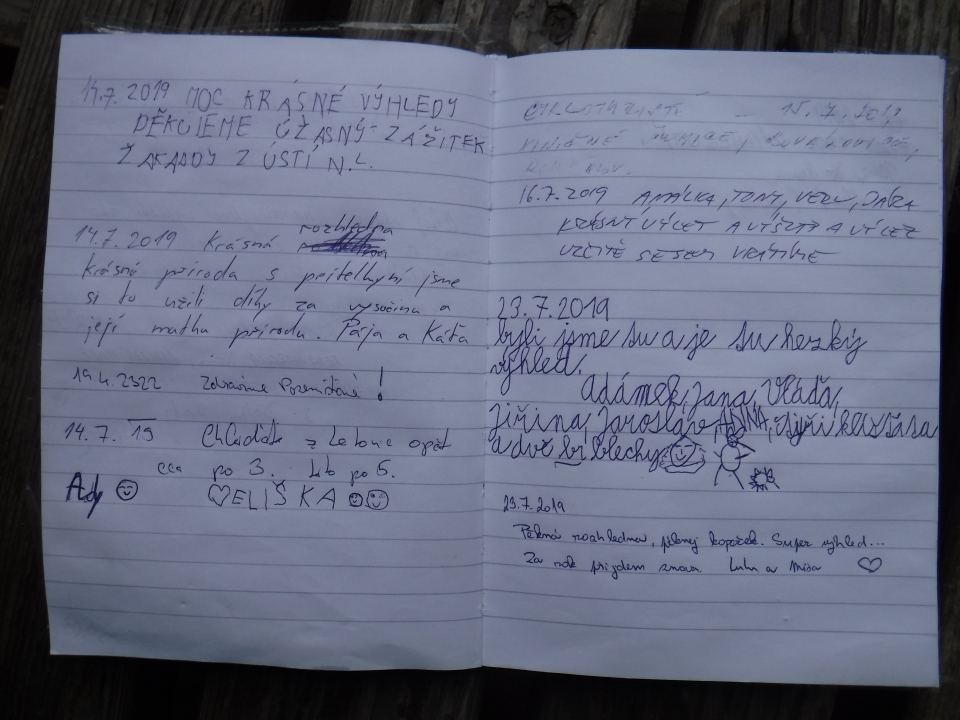 14.7. 2019 MOC KRÁSNÉ VÝHLEDY
DĚKUJEME ÚŽASNÝ ZÁŽITEK
Z ÚSTÍ N.L.
14.7.2019 Krásná rozhledna
krásná příroda s přítelkyní jsme
si to užili díky za vysočinu a
její matku přírodu. Pája a Káťa
19.4.2322 Zdravíme !
14.7. 19 z Letovic opět
cca po 3. po 5.
Ady
ELIŠKA
15.7.2019
16.7.2019 AMÁLKA, TONY,
KRÁSNÝ VÝLET A A VÝLEZ
URČITĚ SE SEM VRÁTÍME
23.7.2019
byli jsme tu a je tu hezký
výhled.
Adámek, Jana, Vláďa,
Jiřina, Jaroslav, ANINA,
a dvě blechy
29.7.2019
Pěkná rozhledna, pěkný kopeček. Super výhled...
Za rok přijdem znova